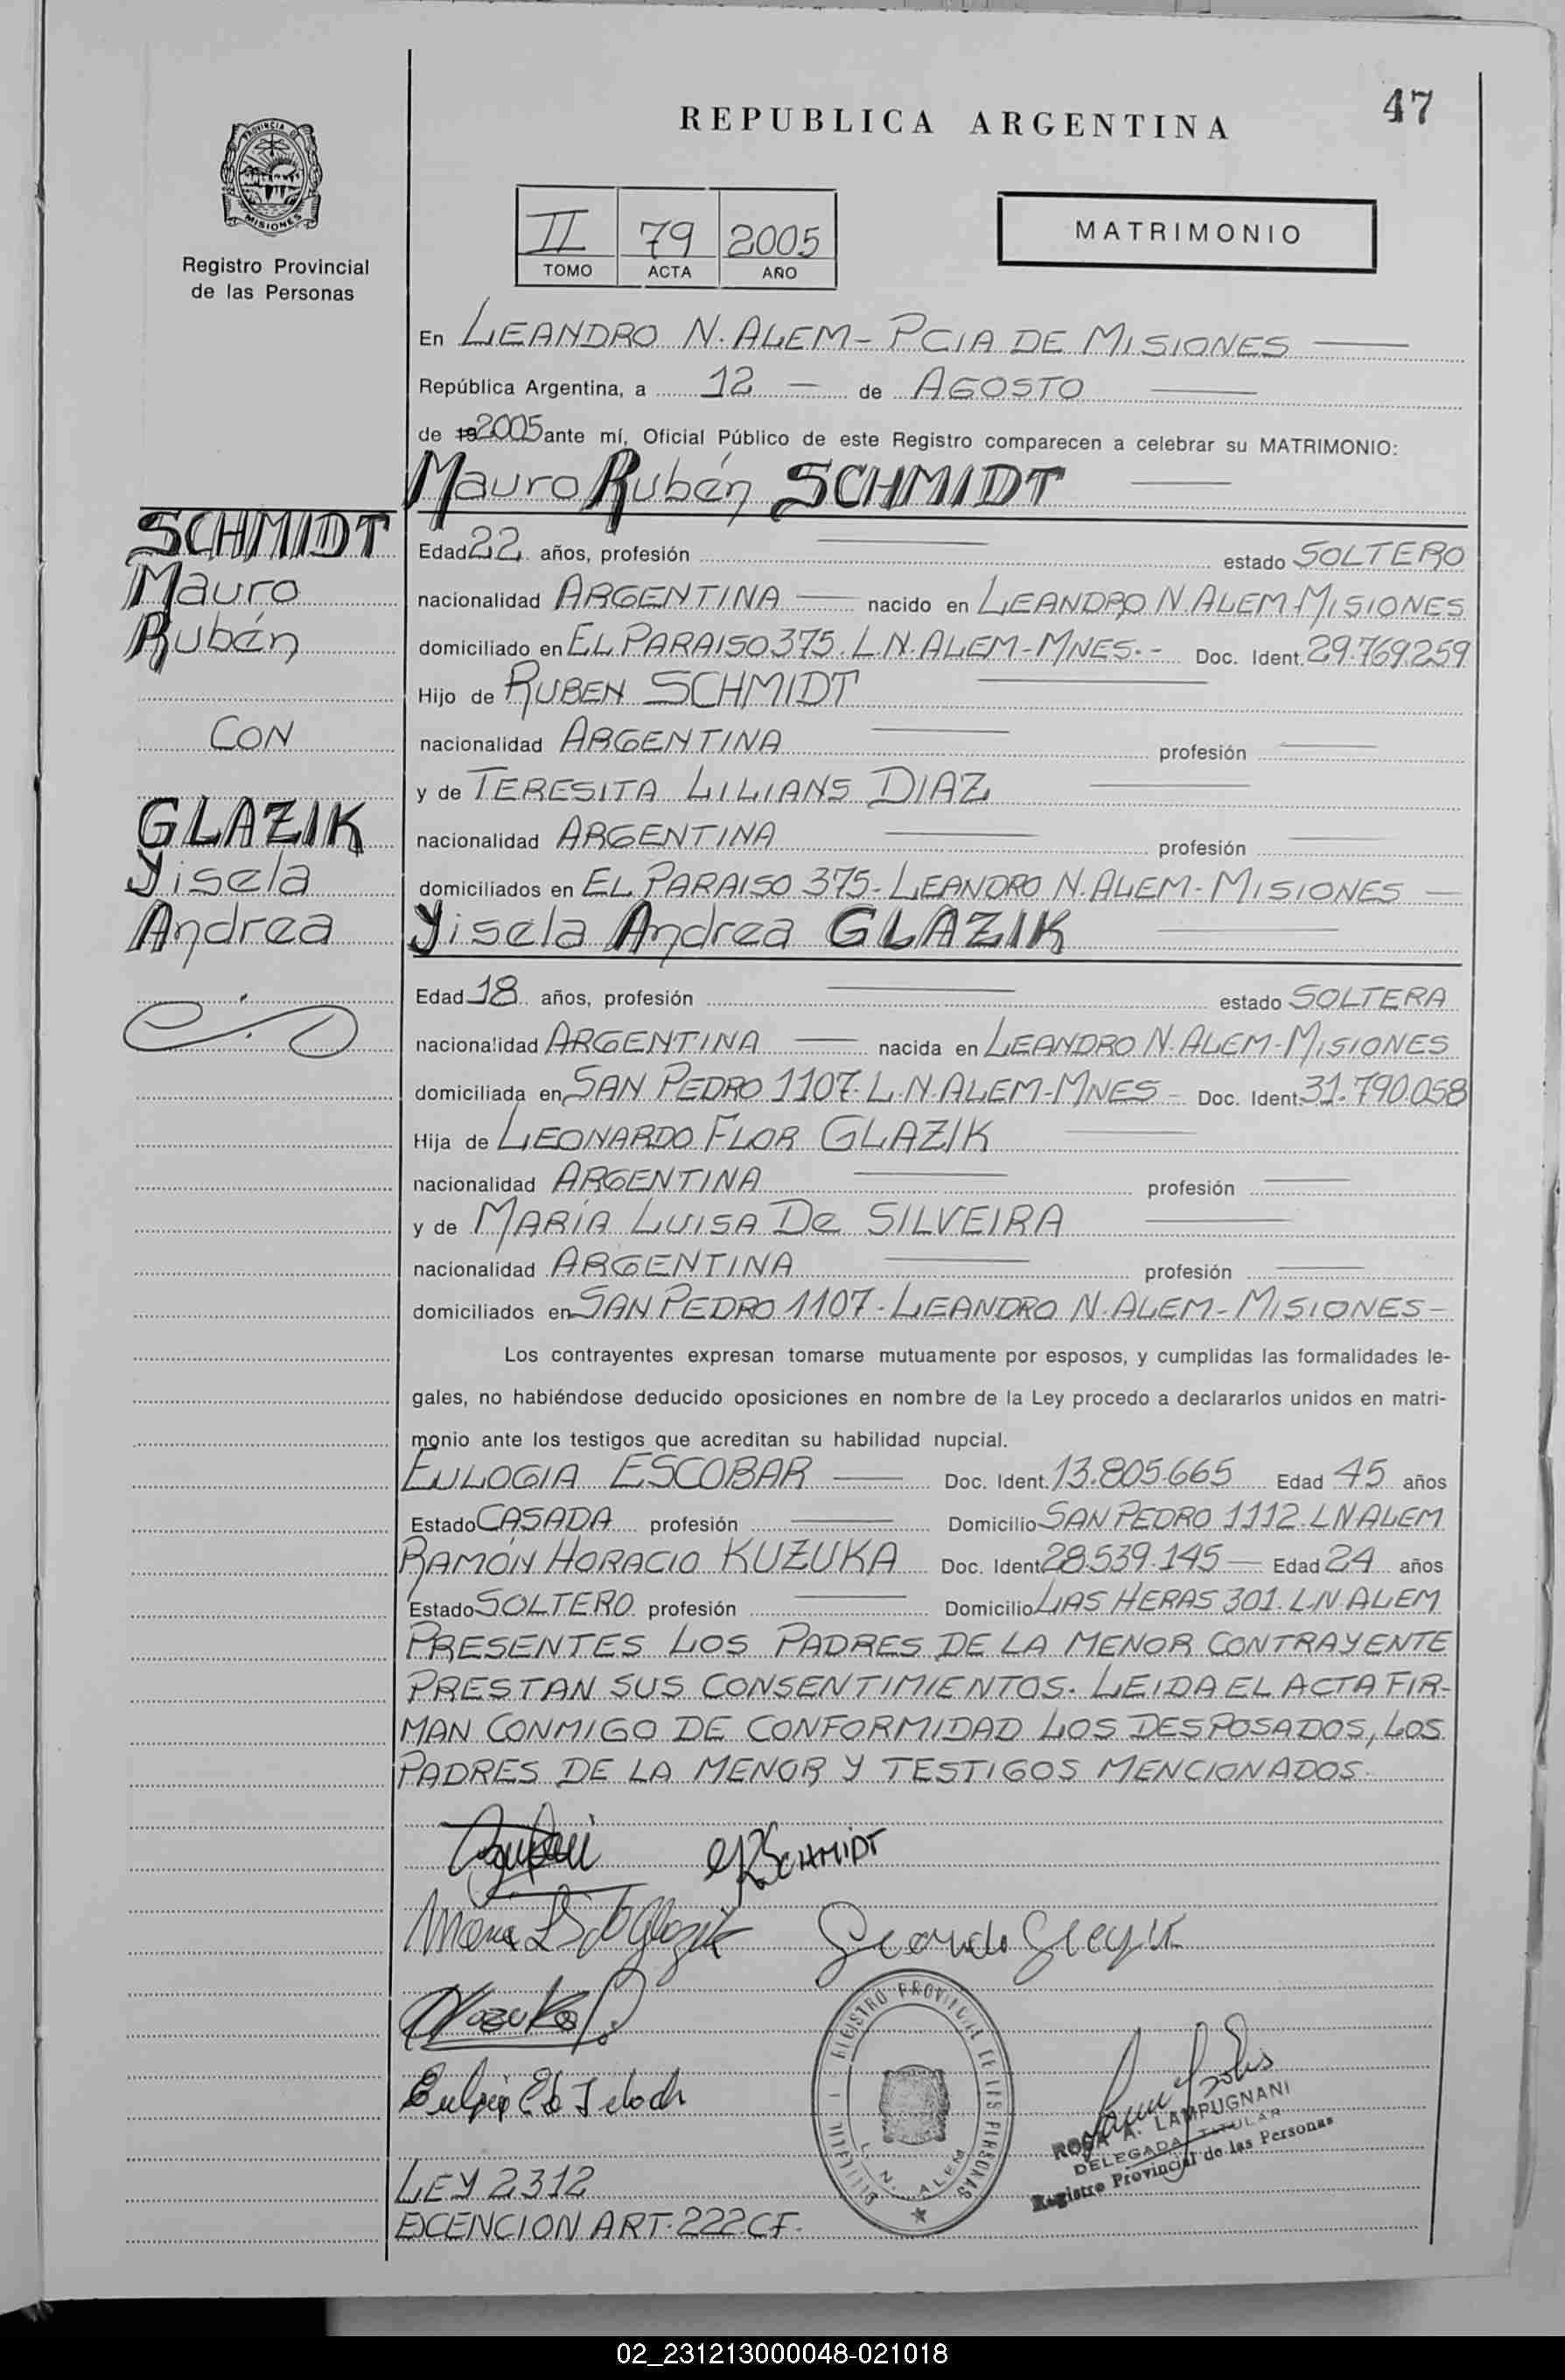 47
REPUBLICA ARGENTINA
PROVINCIA DE
MISIONES
Registro Provincial
de las Personas
II 79 2005
TOMO ACTA AÑO
MATRIMONIO
En LEANDRO N. ALEM - PCIA DE MISIONES
República Argentina, a 12 — de AGOSTO
de 19 2005 ante mí, Oficial Público de este Registro comparecen a celebrar su MATRIMONIO:
Mauro Rubén SCHMIDT
SCHMIDT
Mauro
Rubén
CON
GLAZIK
Yisela
Andrea
Edad 22 años, profesión — estado SOLTERO
nacionalidad ARGENTINA — nacido en LEANDRO N ALEM-MISIONES
domiciliado en EL PARAISO 375. L.N. ALEM-MNES.- Doc. Ident. 29.769.259
Hijo de RUBEN SCHMIDT
nacionalidad ARGENTINA — profesión —
y de TERESITA LILIANS DIAZ
nacionalidad ARGENTINA — profesión —
domiciliados en EL PARAISO 375- LEANDRO N. ALEM-MISIONES —
Yisela Andrea GLAZIK
Edad 18 años, profesión — estado SOLTERA
nacionalidad ARGENTINA — nacida en LEANDRO N. ALEM-MISIONES
domiciliada en SAN PEDRO 1107. L.N. ALEM-MNES - Doc. Ident. 31.790.058
Hija de LEONARDO FLOR GLAZIK
nacionalidad ARGENTINA — profesión —
y de MARÍA LUISA De SILVEIRA
nacionalidad ARGENTINA — profesión —
domiciliados en SAN PEDRO 1107- LEANDRO N. ALEM-MISIONES-
Los contrayentes expresan tomarse mutuamente por esposos, y cumplidas las formalidades le-
gales, no habiéndose deducido oposiciones en nombre de la Ley procedo a declararlos unidos en matri-
monio ante los testigos que acreditan su habilidad nupcial.
EULOGIA ESCOBAR — Doc. Ident. 13.805.665 Edad 45 años
Estado CASADA profesión — Domicilio SAN PEDRO 1112. LN ALEM
RAMÓN HORACIO KUZUKA Doc. Ident 28.539.145 — Edad 24 años
Estado SOLTERO profesión — Domicilio LAS HERAS 301. L.N. ALEM
PRESENTES LOS PADRES DE LA MENOR CONTRAYENTE
PRESTAN SUS CONSENTIMIENTOS. LEIDA EL ACTA FIR-
MAN CONMIGO DE CONFORMIDAD LOS DESPOSADOS, LOS
PADRES DE LA MENOR Y TESTIGOS MENCIONADOS.
SCHMIDT
REGISTRO PROVINCIAL DE LAS PERSONAS
L. N. ALEM
ROSA A. LAMPUGNANI
DELEGADA TITULAR
Registro Provincial de las Personas
LEY 2312
EXCENCION ART. 222.CF.
02_231213000048-021018